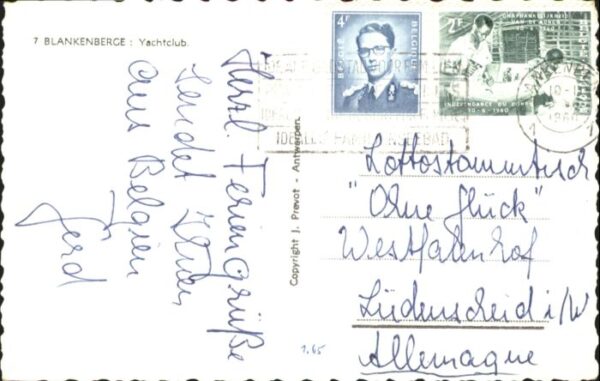 7 BLANKENBERGE : Yachtclub.
Herzl. Feriengrüße
sendet Ihnen
aus Belgien
Gerd
Copyright J. Prevot - Antwerpen.
4F
BELGIE
BELGIQUE
7F
ONAFHANKELIJKHEID
INDEPENDANCE DU CONGO
30-6-1960
Lottostammtisch
"Ohne Glück"
Westfalenhof
Lüdenscheid i/W
Allemagne
1.65